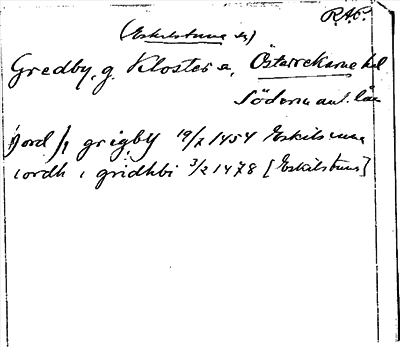 R.A.P.
(Eskilstuna sn)
Gredby, g. Kloster sn, Österrekarne hd
Södermanl. län
jord j grigby 19/7 1454 Eskilstuna
iordh i gridhbi 3/2 1478 [Eskilstuna]